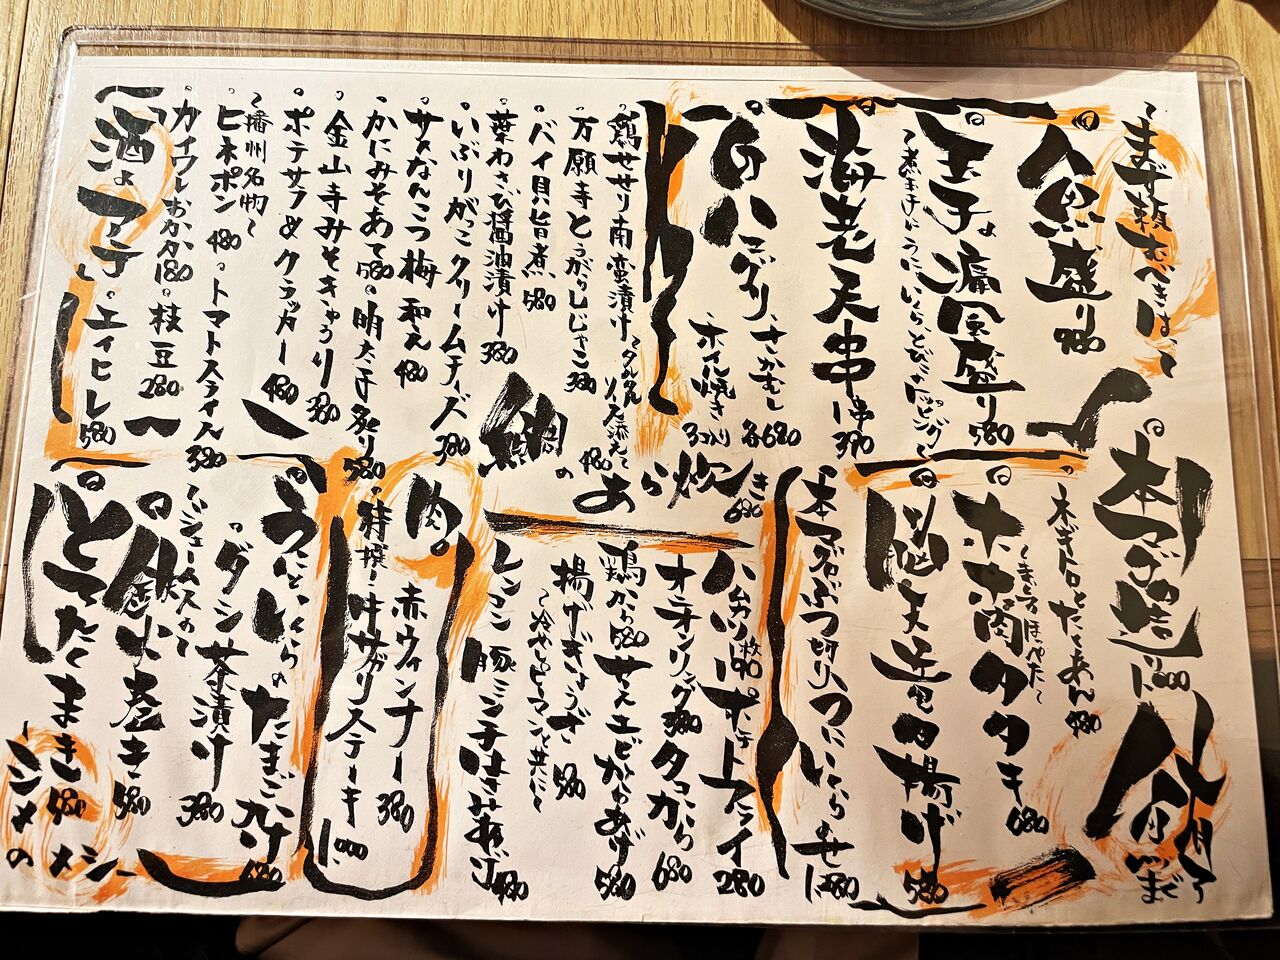 〜まず頼むべきはこって
魚盛り 980
玉子の痛風盛り 580
〜煮玉子にうに・いくら・とびこトッピング〜
海老天串 1串 390
ハマグリ さかむし ホイル焼き 3コ入り 各680
鶏せせり南蛮漬け 〜タルタルソース添え〜 480
万願寺とうがらしじゃこ 380
バイ貝旨煮 580
葉わさび醤油漬け 380
いぶりがっこクリームチーズ 380
サメなんこつ梅和え 480
かにみそあて 580
明太子炙り 580
金山寺みそきゅうり 380
ポテサラ クラッカー 480
〜播州名物〜
ヒネポン 480
トマトスライス 380
カイワレおかか 180
枝豆 280
酒のアテ
エイヒレ 580
のあら炊き 680
本マグロの造り
本ネギトロとたくあん 480
ホホ肉タタキ 680
脳天竜田揚げ 580
本マグロぶつ切り うに いくらのせ 1280
ハムカツ 1枚 190
ポテトフライ 280
オニオンリング 380
タコから 680
鶏から 580
甘エビからあげ 580
揚げぎょうざ 580
〜冷やしピーマンと共に〜
レンコン豚ミンチはさみあげ 480
肉
赤ウインナー 380
特撰牛サガリステーキ 1000
うにといくらのたまごかけ 680
ダシ茶漬け 380
鉄火巻き 580
とろたくまき 580
〜シメのメシ〜